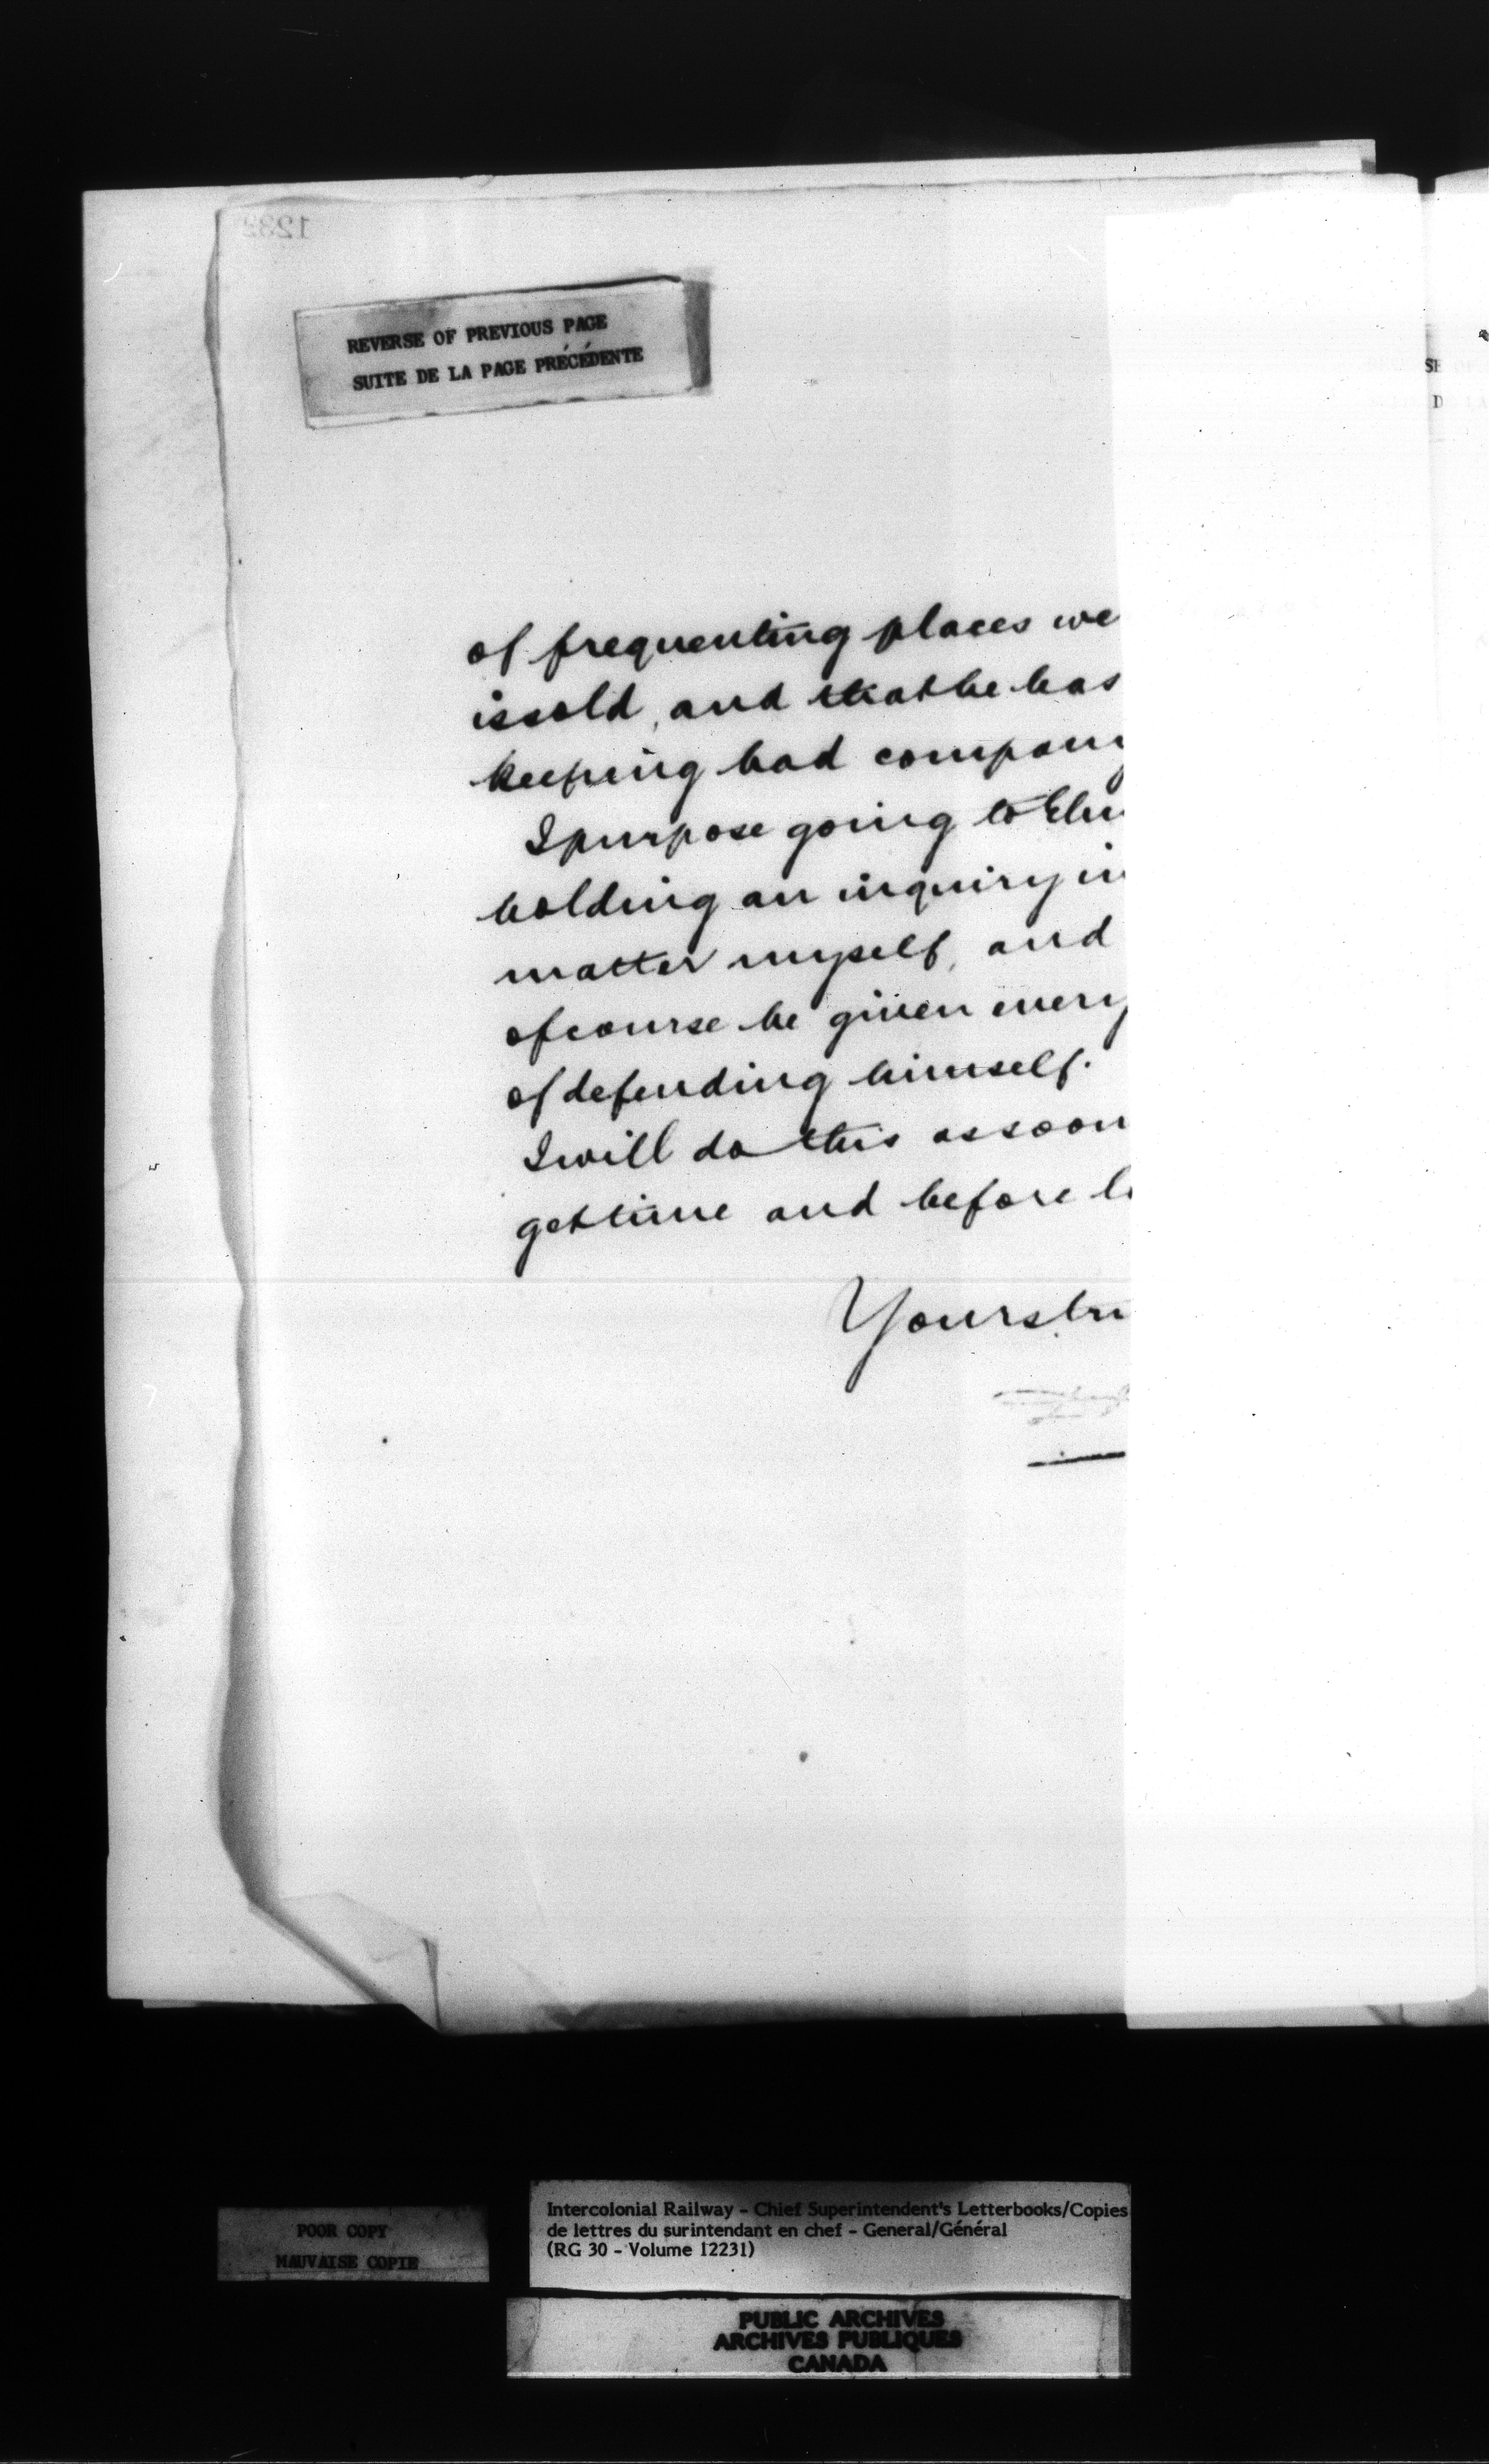 REVERSE OF PREVIOUS PAGE
SUITE DE LA PAGE PRÉCÉDENTE
of frequenting places we
is sold, and that he has
keeping bad company
I purpose going to
holding an inquiry in
matter myself, and
of course be given every
of defending himself.
I will do this as soon
get time and before
Yours tru
POOR COPY
MAUVAISE COPIE
Intercolonial Railway - Chief Superintendent's Letterbooks/Copies
de lettres du surintendant en chef - General/Général
(RG 30 - Volume 12231)
PUBLIC ARCHIVES
ARCHIVES PUBLIQUES
CANADA